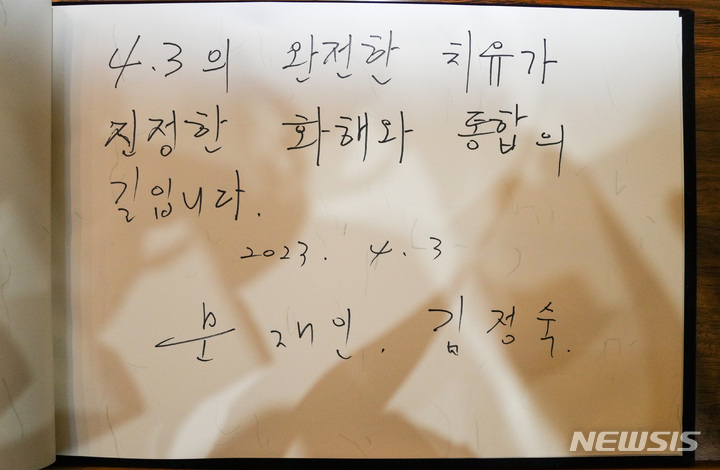 4.3의 완전한 치유가
진정한 화해와 통합의
길입니다.
2023. 4.3
문재인. 김정숙.
NEWSIS